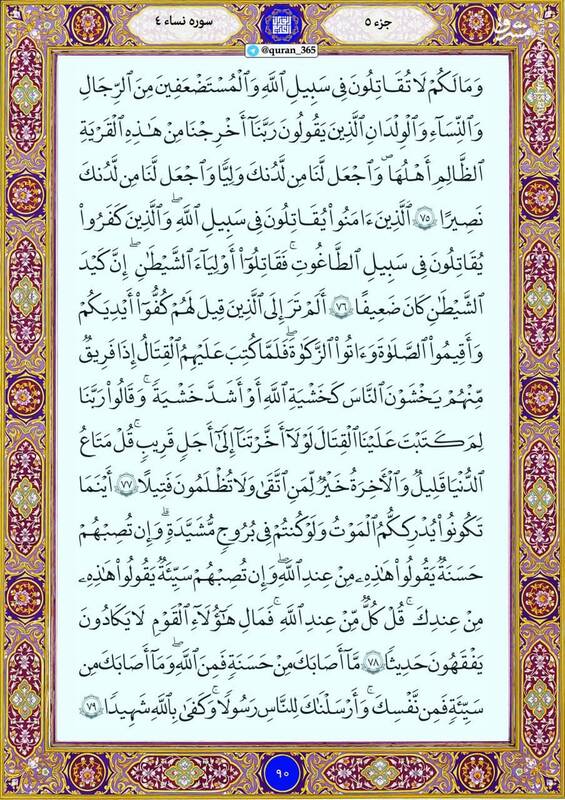 جزء ٥
سوره نساء ٤
مشرق
@quran_365
وَمَا لَكُمْ لَا تُقَاتِلُونَ فِى سَبِيلِ ٱللَّهِ وَٱلْمُسْتَضْعَفِينَ مِنَ ٱلرِّجَالِ
وَٱلنِّسَآءِ وَٱلْوِلْدَانِ ٱلَّذِينَ يَقُولُونَ رَبَّنَآ أَخْرِجْنَا مِنْ هَٰذِهِ ٱلْقَرْيَةِ
ٱلظَّالِمِ أَهْلُهَا وَٱجْعَل لَّنَا مِن لَّدُنكَ وَلِيًّا وَٱجْعَل لَّنَا مِن لَّدُنكَ
نَصِيرًا ٧٥ ٱلَّذِينَ ءَامَنُوا۟ يُقَاتِلُونَ فِى سَبِيلِ ٱللَّهِ ۖ وَٱلَّذِينَ كَفَرُوا۟
يُقَاتِلُونَ فِى سَبِيلِ ٱلطَّاغُوتِ فَقَاتِلُوٓا۟ أَوْلِيَآءَ ٱلشَّيْطَٰنِ ۖ إِنَّ كَيْدَ
ٱلشَّيْطَٰنِ كَانَ ضَعِيفًا ٧٦ أَلَمْ تَرَ إِلَى ٱلَّذِينَ قِيلَ لَهُمْ كُفُّوٓا۟ أَيْدِيَكُمْ
وَأَقِيمُوا۟ ٱلصَّلَوٰةَ وَءَاتُوا۟ ٱلزَّكَوٰةَ فَلَمَّا كُتِبَ عَلَيْهِمُ ٱلْقِتَالُ إِذَا فَرِيقٌ
مِّنْهُمْ يَخْشَوْنَ ٱلنَّاسَ كَخَشْيَةِ ٱللَّهِ أَوْ أَشَدَّ خَشْيَةً ۚ وَقَالُوا۟ رَبَّنَا
لِمَ كَتَبْتَ عَلَيْنَا ٱلْقِتَالَ لَوْلَآ أَخَّرْتَنَآ إِلَىٰٓ أَجَلٍ قَرِيبٍ ۗ قُلْ مَتَٰعُ
ٱلدُّنْيَا قَلِيلٌ وَٱلْـَٔاخِرَةُ خَيْرٌ لِّمَنِ ٱتَّقَىٰ وَلَا تُظْلَمُونَ فَتِيلًا ٧٧ أَيْنَمَا
تَكُونُوا۟ يُدْرِككُّمُ ٱلْمَوْتُ وَلَوْ كُنتُمْ فِى بُرُوجٍ مُّشَيَّدَةٍ ۗ وَإِن تُصِبْهُمْ
حَسَنَةٌ يَقُولُوا۟ هَٰذِهِۦ مِنْ عِندِ ٱللَّهِ ۖ وَإِن تُصِبْهُمْ سَيِّئَةٌ يَقُولُوا۟ هَٰذِهِۦ
مِنْ عِندِكَ ۚ قُلْ كُلٌّ مِّنْ عِندِ ٱللَّهِ ۖ فَمَالِ هَٰٓؤُلَآءِ ٱلْقَوْمِ لَا يَكَادُونَ
يَفْقَهُونَ حَدِيثًا ٧٨ مَّآ أَصَابَكَ مِنْ حَسَنَةٍ فَمِنَ ٱللَّهِ ۖ وَمَآ أَصَابَكَ مِن
سَيِّئَةٍ فَمِن نَّفْسِكَ ۚ وَأَرْسَلْنَٰكَ لِلنَّاسِ رَسُولًا ۚ وَكَفَىٰ بِٱللَّهِ شَهِيدًا ٧٩
٩٠